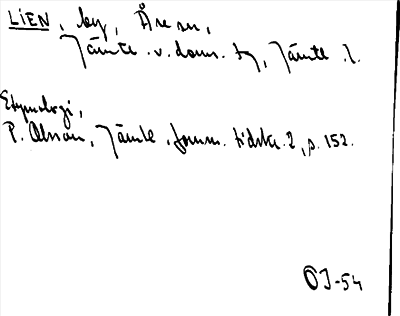 LIEN, by, Åre sn,
Jämtl. v. doms. tg, Jämtl. l.
Etymologi,
P. Olsson, Jämtl. fornm. tidskr. 2, s. 152.
OJ-54